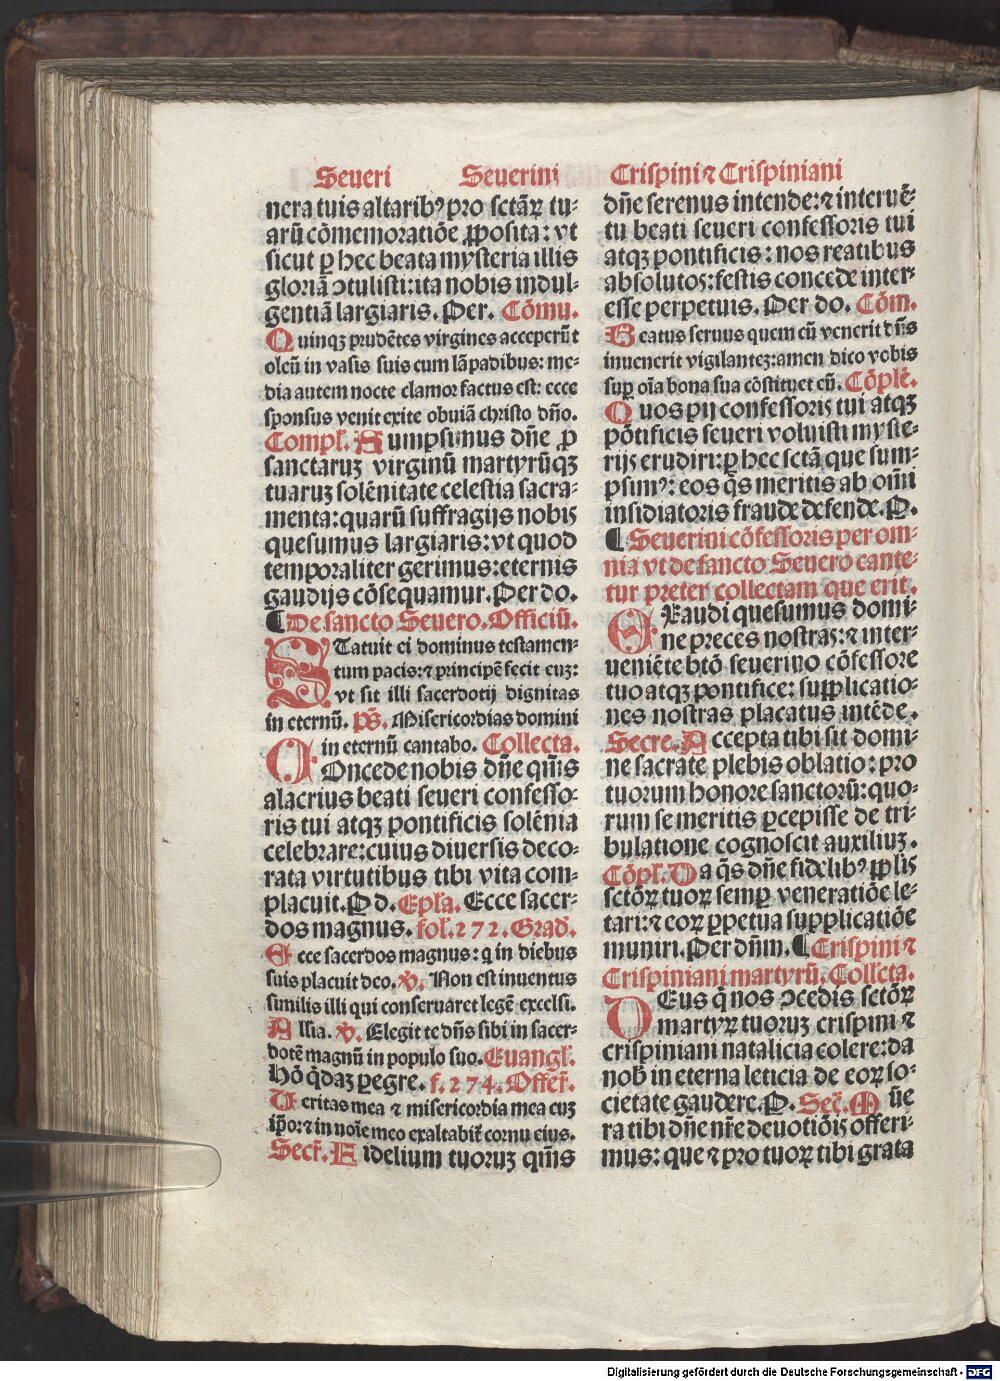 Seueri Seuerini Crispini ⁊ Crispiniani
nera tuis altaribꝰ pro sctãꝝ tu-
arũ cõmemoratiõe ꝓposita: vt
sicut ꝑ hec beata mysteria illis
gloriã ꝯtulisti: ita nobis indul-
gentiã largiaris. Per. Cõmu.
Quinqꝫ prudẽtes virgines acceperũt
oleũ in vasis suis cum lãpadibus: me-
dia autem nocte clamor factus est: ecce
sponsus venit exite obuiã christo dño.
Compl̃. Sumpsimus dñe ꝓ
sanctaruꝫ virginũ martyrũqꝫ
tuaruꝫ solẽnitate celestia sacra-
menta: quarũ suffragijs nobis
quesumus largiaris: vt quod
temporaliter gerimus: eternis
gaudijs cõsequamur. Per do.
¶ De sancto Seuero. Officiũ.
STatuit ei dominus testamen-
tum pacis: ⁊ principẽ fecit euꝫ:
vt sit illi sacerdotij dignitas
in eternũ. p̃s. Misericordias domini
in eternũ cantabo. Collecta.
COncede nobis dñe qm̃s
alacrius beati seueri confesso-
ris tui atqꝫ pontificis solẽnia
celebrare: cuius diuersis deco-
rata virtutibus tibi vita com-
placuit. P d. Epl̃a. Ecce sacer-
dos magnus. fol. 272. Grad̃.
Ecce sacerdos magnus: q in diebus
suis placuit deo. ℣. Non est inuentus
similis illi qui conseruaret legẽ excelsi.
Allia. ℣. Elegit te dñs sibi in sacer-
dotẽ magnũ in populo suo. Euangl̃.
Hõ q̃daꝫ ꝑegre. f. 274. Offer̃.
Ueritas mea ⁊ misericordia mea cuꝫ
ip̃o: ⁊ in noĩe meo exaltabit̃ cornu eius.
Secr̃. Fidelium tuoruꝫ qm̃s
dñe serenus intende: ⁊ interuẽ-
tu beati seueri confessoris tui
atqꝫ pontificis: nos reatibus
absolutos: festis concede inter-
esse perpetuis. Per do. Cõm.
Beatus seruus quem cũ venerit dñs
inuenerit vigilanteꝫ: amen dico vobis
suꝑ oĩa bona sua cõstituet eũ. Cõplẽ.
Quos pij confessoris tui atqꝫ
põtificis seueri voluisti myste-
rijs erudiri: ꝑ hec sctã que sum-
psimꝰ: eos q̃s meritis ab om̃i
insidiatoris fraude defende. P.
¶ Seuerini cõfessoris per om-
nia vt de sancto Seuero cante-
tur preter collectam que erit.
EXaudi quesumus domi-
ne preces nostras: ⁊ inter-
ueniẽte btõ seuerino cõfessore
tuo atqꝫ pontifice: supplicatio-
nes nostras placatus intẽde.
Secre. Accepta tibi sit domi-
ne sacrate plebis oblatio: pro
tuorum honore sanctorũ: quo-
rum se meritis ꝑcepisse de tri-
bulatione cognoscit auxiliuꝫ.
Cõpl̃. Da q̃s dñe fidelibꝰ ppl̃is
sctõꝝ tuoꝝ semꝑ veneratiõe le-
tari: ⁊ eoꝝ ꝑpetua supplicatiõe
muniri. Per dñm. ¶ Crispini ⁊
Crispiniani martyrũ. Collc̃ta.
DEus q̃ nos ꝯcedis sctõꝝ
martyꝝ tuoruꝫ crispini ⁊
crispiniani natalicia colere: da
nob̃ in eterna leticia de eoꝝ so-
cietate gaudere. P. Sec̃. Mũe
ra tibi dñe nr̃e deuotiõis offeri-
mus: que ⁊ pro tuoꝝ tibi grata
Digitalisierung gefördert durch die Deutsche Forschungsgemeinschaft - DFG